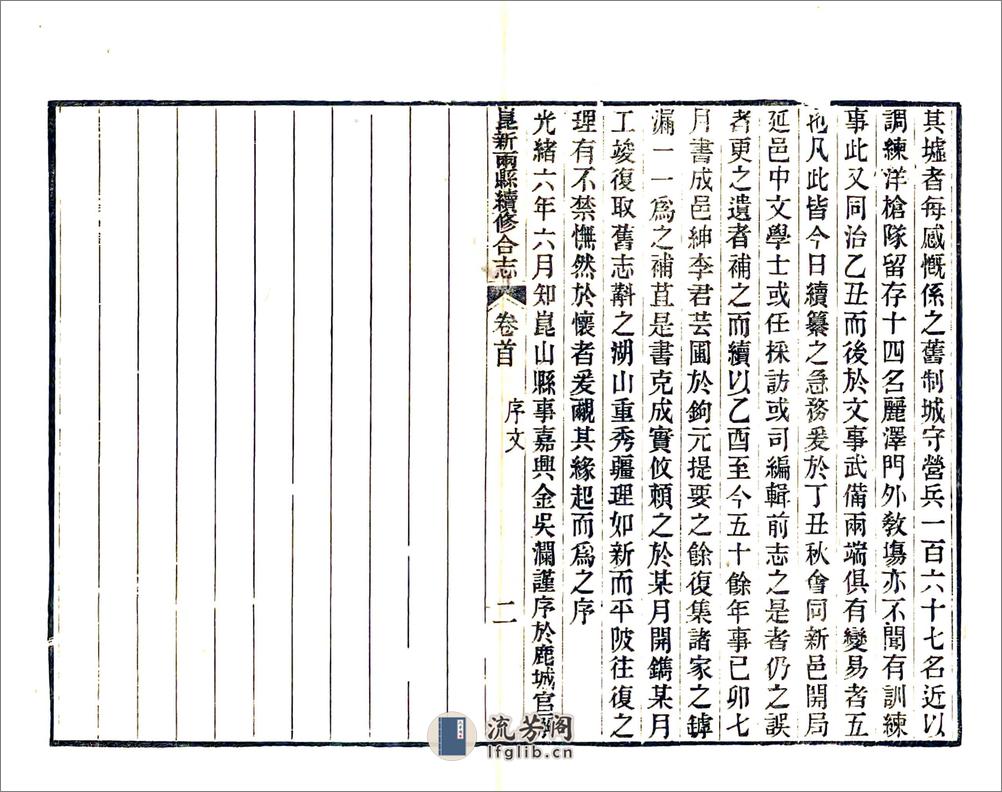 其墟者每感慨係之舊制城守營兵一百六十七名近以
調練洋槍隊留存十四名麗澤門外教塲亦不聞有訓練
事此又同治乙丑而後於文事武備兩端俱有變易者五
也凡此皆今日續纂之急務爰於丁丑秋會同新邑開局
延邑中文學士或任採訪或司編輯前志之是者仍之誤
者更之遺者補之而續以乙酉至今五十餘年事已卯七
月書成邑紳李君芸圃於鉤元提要之餘復集諸家之罅
漏一一爲之補苴是書克成實攸頼之於某月開鐫某月
工竣復取舊志斠之湖山重秀疆理如新而平陂往復之
理有不禁憮然於懷者爰覼其緣起而爲之序
光緒六年六月知崑山縣事嘉興金吳瀾謹序於鹿城官
崑新兩縣續修合志 卷首 序文 二
流芳阁
lfglib.cn